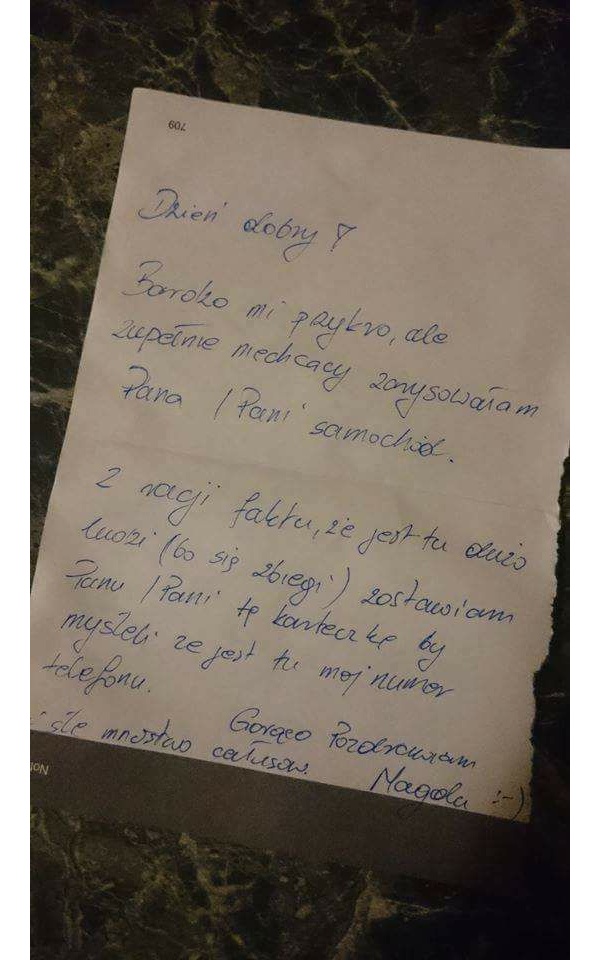 709
Dzień dobry!
Bardzo mi przykro, ale
zupełnie niechcący zarysowałam
Pana / Pani samochód.
Z racji faktu, że jest tu dużo
ludzi (bo się zbiegli) zostawiam
Panu / Pani tę karteczkę by
myśleli że jest tu mój numer
telefonu.
Gorąco Pozdrawiam
i ślę mnóstwo całusów.
Magda :-)